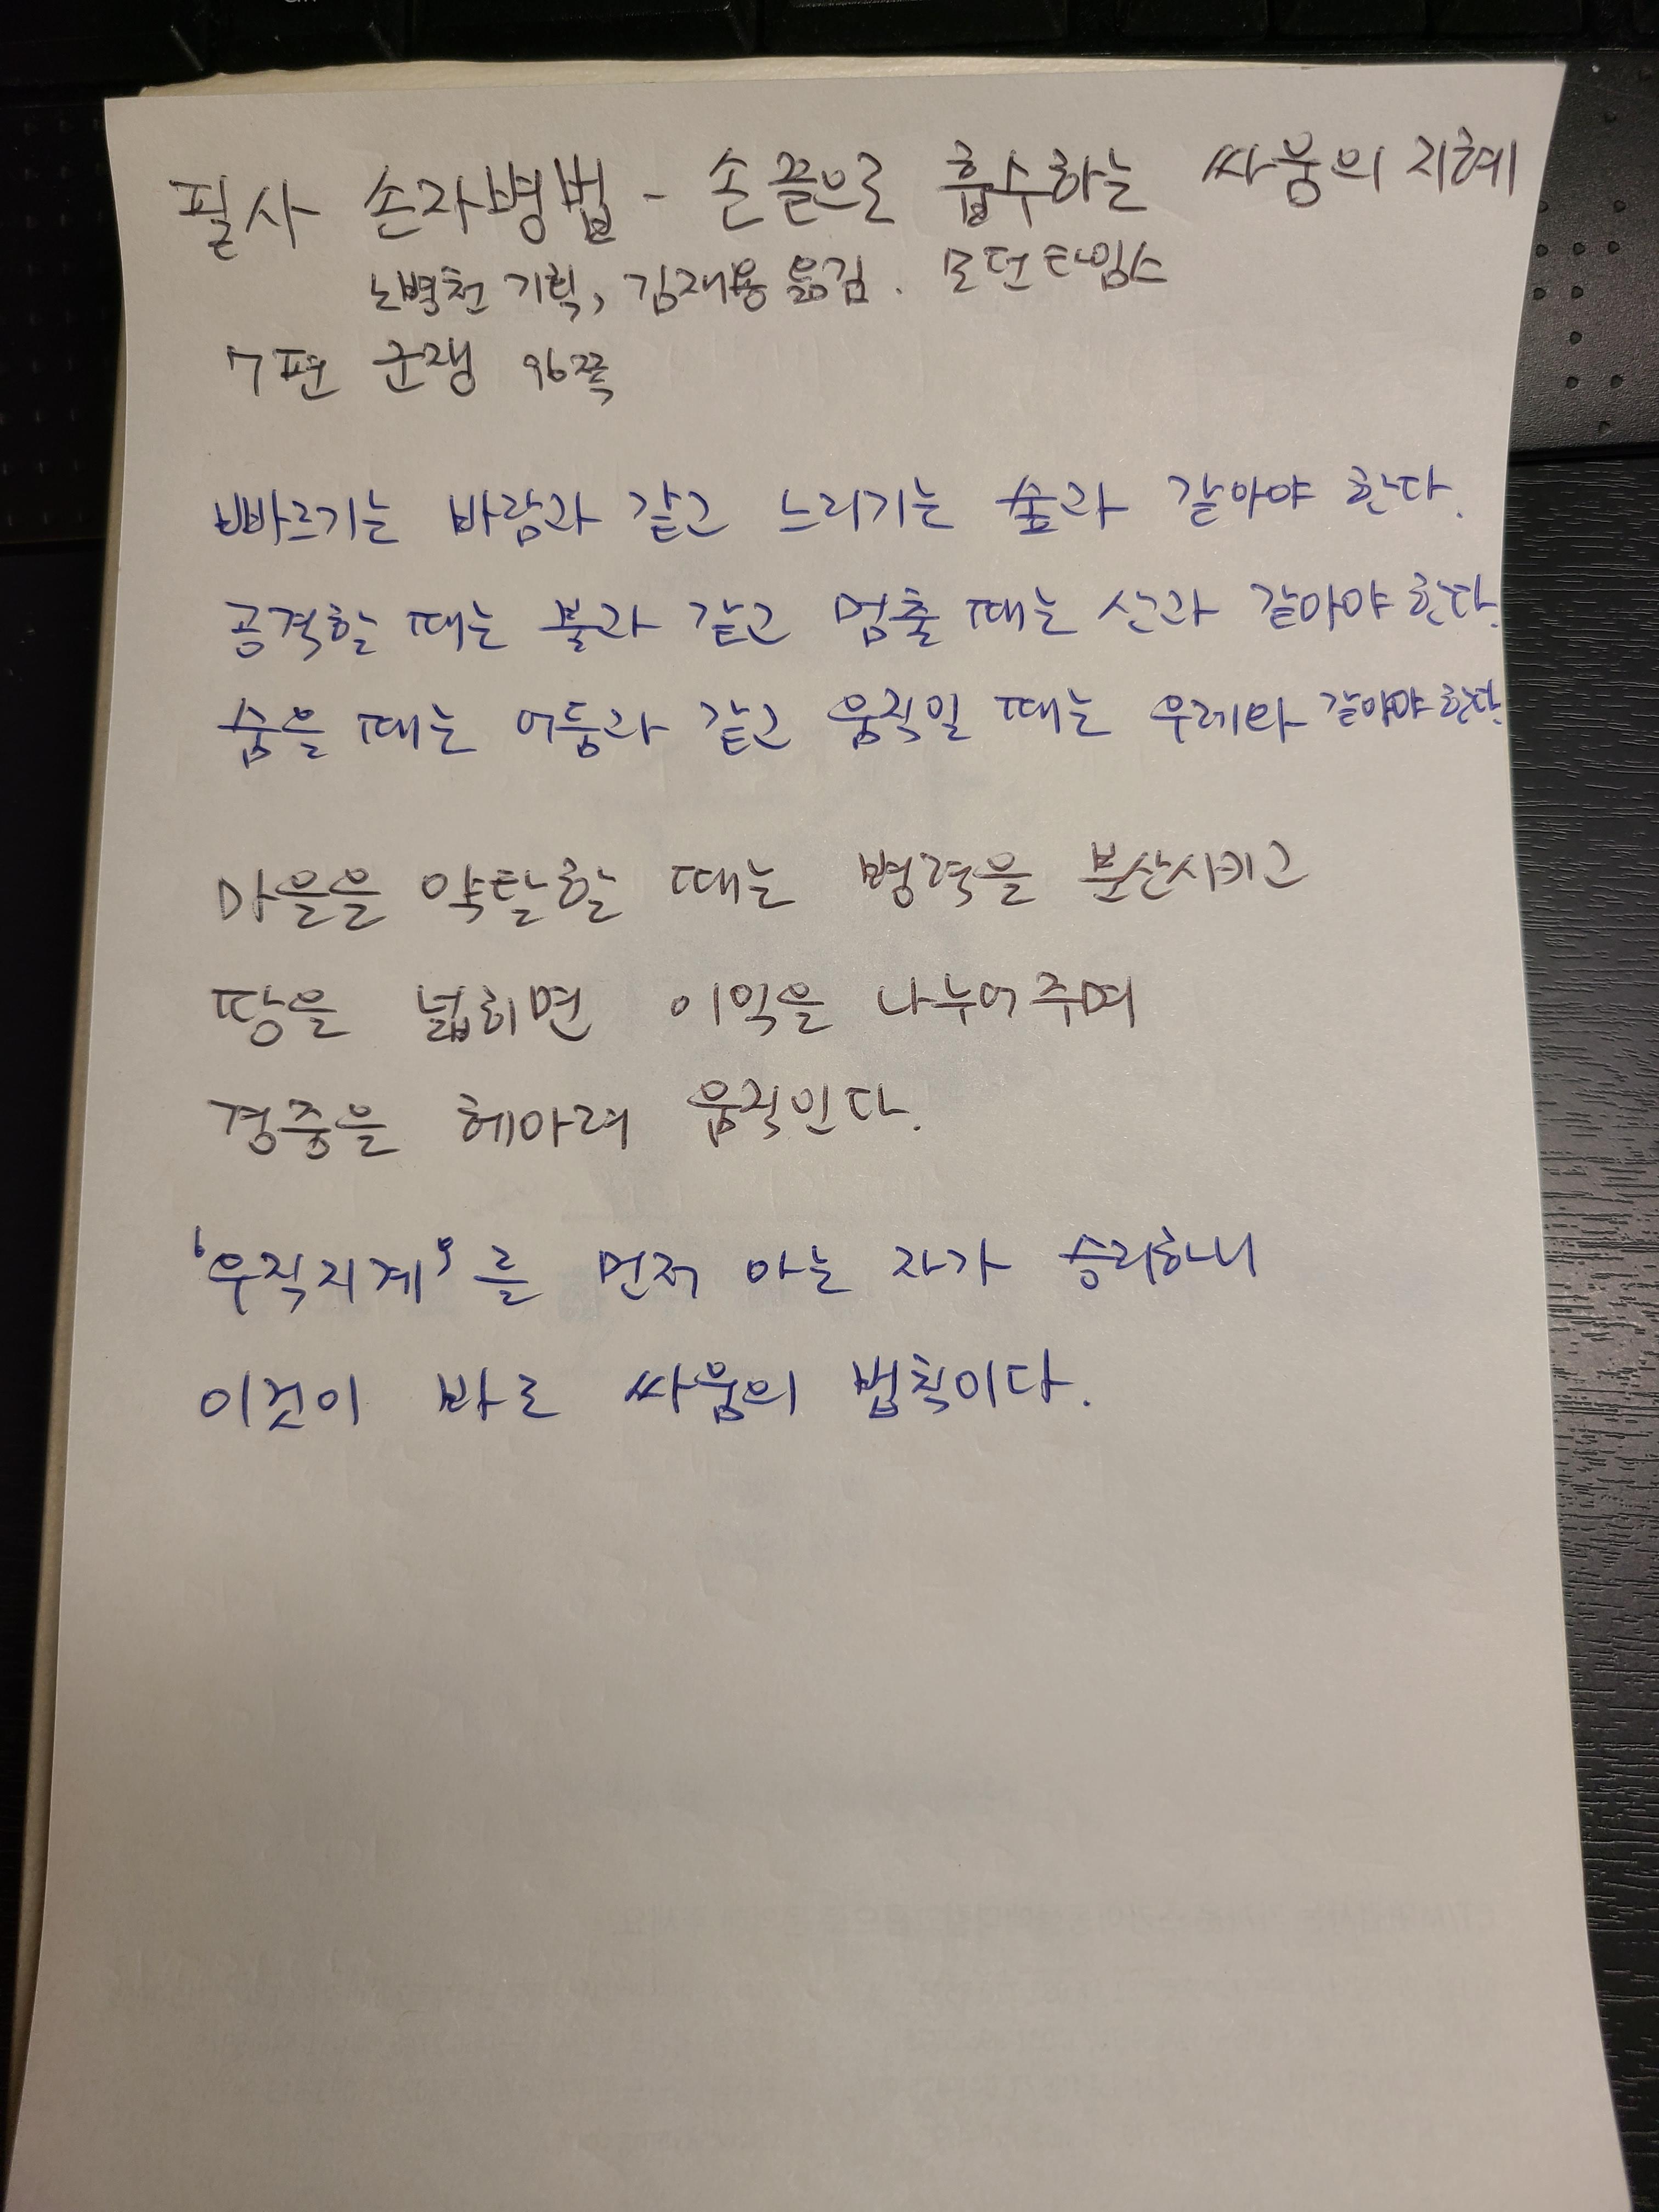 필사 손자병법 - 손끝으로 흡수하는 싸움의 지혜
노병천 기획, 김재용 옮김. 모던타임스
7편 군쟁 96쪽
빠르기는 바람과 같고 느리기는 숲과 같아야 한다.
공격할 때는 불과 같고 멈출 때는 산과 같아야 한다.
숨을 때는 어둠과 같고 움직일 때는 우레와 같아야 한다.
마을을 약탈할 때는 병력을 분산시키고
땅을 넓히면 이익을 나누어주며
경중을 헤아려 움직인다.
'우직지계'를 먼저 아는 자가 승리하니
이것이 바로 싸움의 법칙이다.